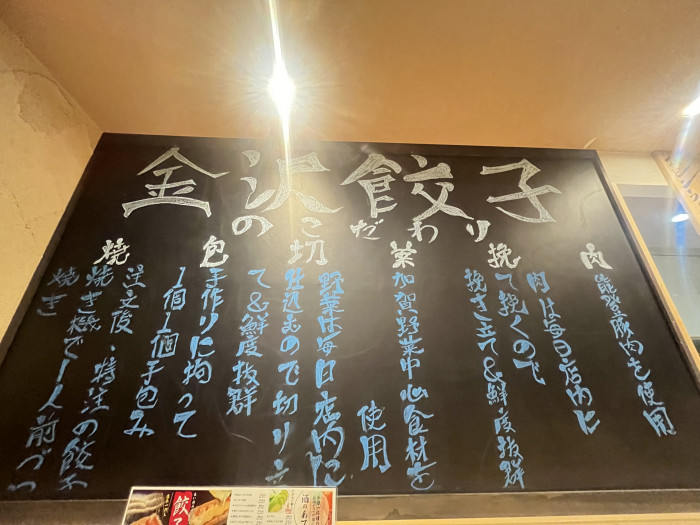 金沢餃子
のこだわり
肉 能登豚肉を使用
肉は毎日店内に
て挽くので
挽 挽き立て&鮮度抜群
菜 加賀野菜中心食材を
使用
切 野菜は毎日店内に
仕込むので切り立
て&鮮度抜群
包 手作りに拘って
1個1個手包み
焼 注文後、特注の餃子
焼き機で一人前づつ
焼き
餃子